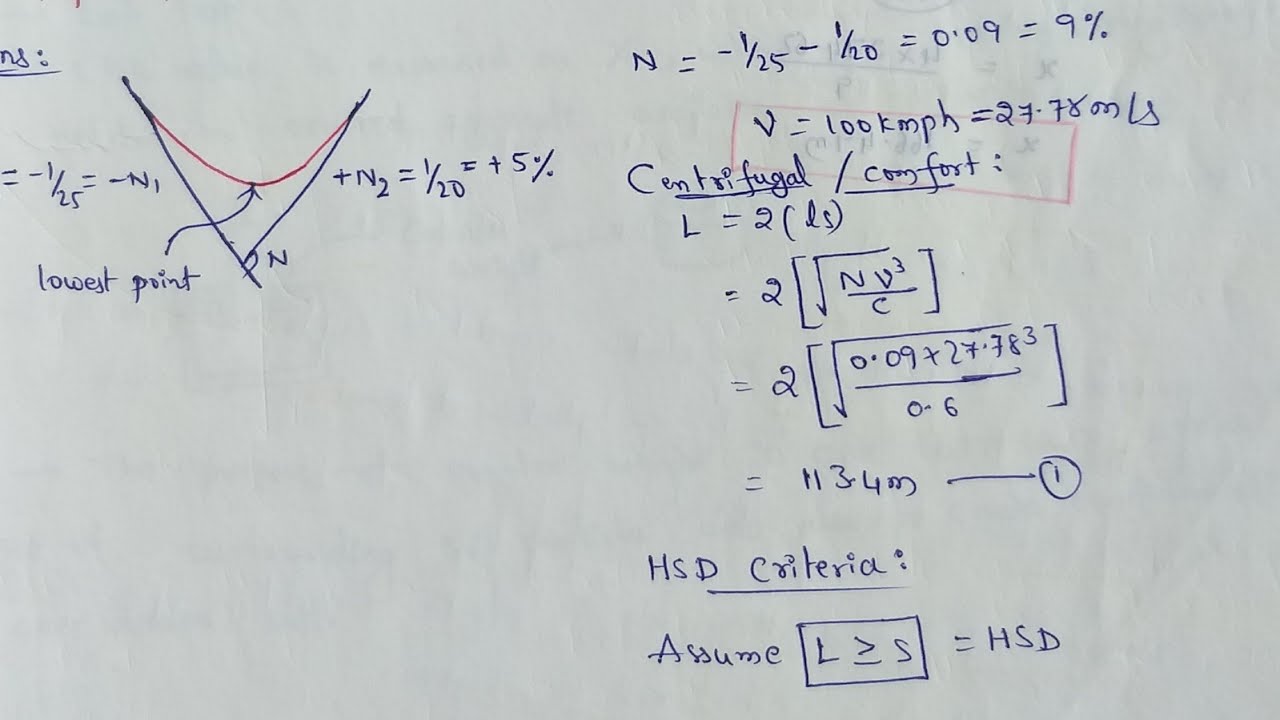 ns:
= -1/25 = -N1
+N2 = 1/20 = +5%
N
lowest point
N = -1/25 - 1/20 = 0.09 = 9%
V = 100kmph = 27.78m/s
Centrifugal / comfort:
L = 2(ls)
= 2[√(NV³/C)]
= 2[√(0.09×27.78³/0.6)]
= 113.4m — ①
HSD criteria:
Assume L ≥ S = HSD